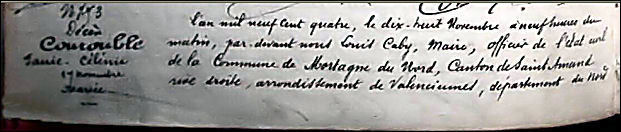 Nº 53
Décès
Courouble
Marie-Célinie
17 novembre
Mariée
L'an mil neuf cent quatre, le dix-huit Novembre à neuf heures du
matin, par-devant nous Louis Caby, Maire, officier de l'état civil
de la Commune de Mortagne du Nord, Canton de Saint Amand
rive droite, arrondissement de Valenciennes, département du Nord